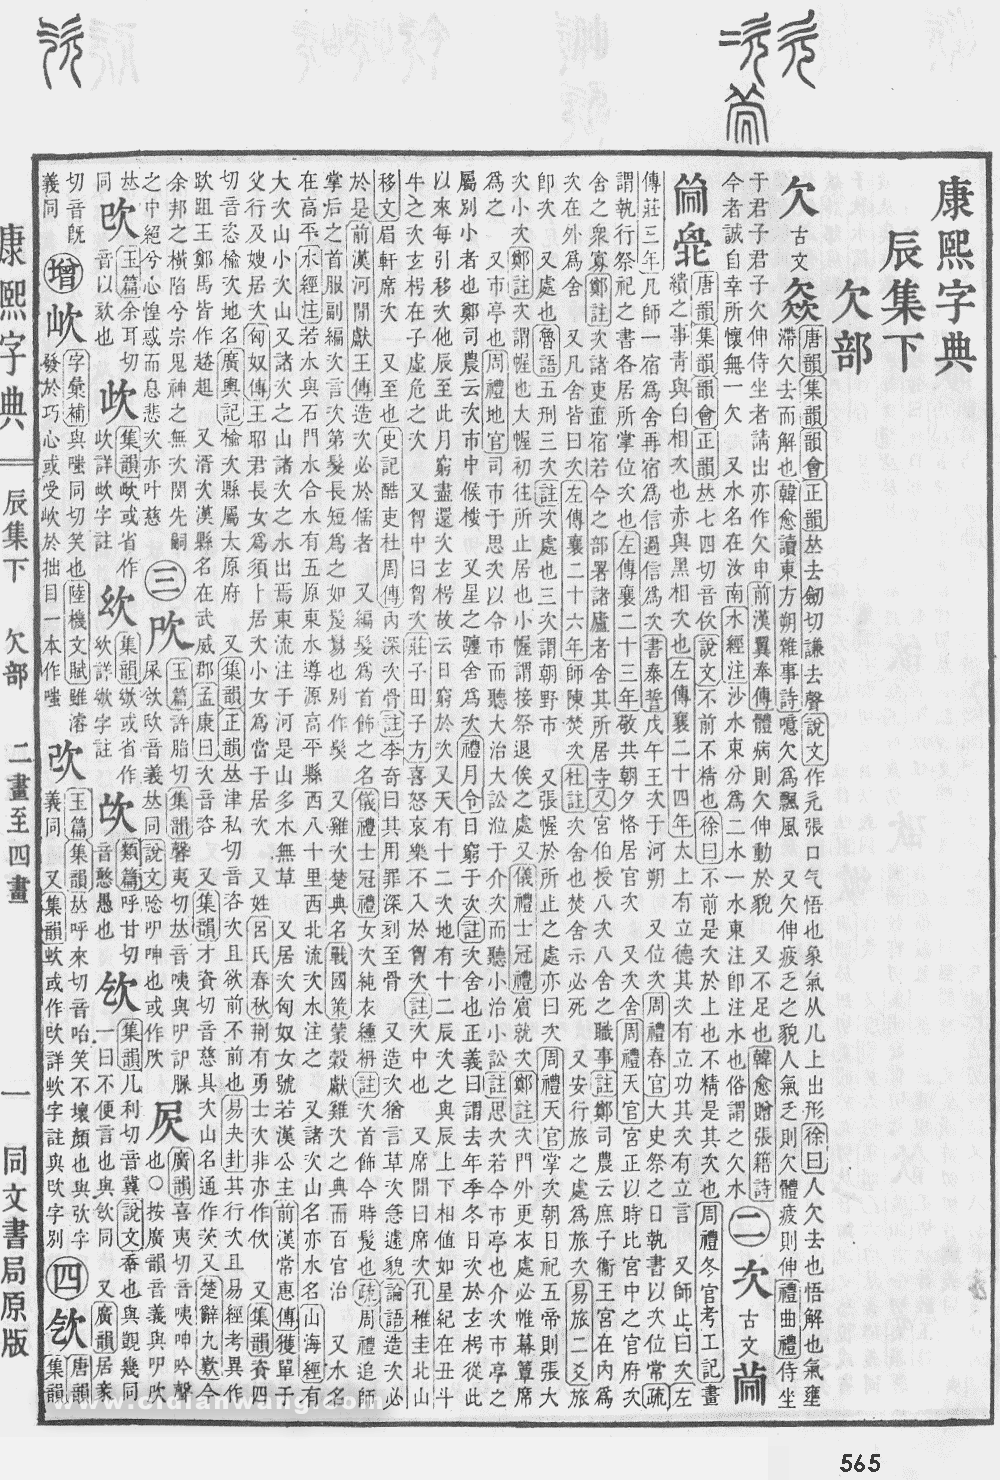 康熙字典
辰集下
欠部
欠古文㒫唐韻集韻韻會正韻𠀤去劒切謙去聲說文作旡張口气悟也象氣从儿上出形徐曰人欠去也悟解也氣壅
滯欠去而解也韓愈讀東方朔雜事詩噫欠爲飄風 又欠伸疲乏之貌人氣乏則欠體疲則伸禮曲禮侍坐
于君子君子欠伸侍坐者請出亦作欠申前漢翼奉傳體病則欠伸動於貌 又不足也韓愈贈張籍詩
今者誠自幸所懷無一欠 又水名在汝南水經注沙水東分爲二水一水東注卽注水也俗謂之欠水
二
次古文
唐韻集韻韻會正韻𠀤七四切音佽說文不前不精也徐曰不前是次於上也不精是其次也周禮冬官考工記畫
繢之事靑與白相次也赤與黑相次也左傳襄二十四年太上有立德其次有立功其次有立言 又師止曰次左
傳莊三年凡師一宿爲舍再宿爲信過信爲次書泰誓戊午王次于河朔 又位次周禮春官大史祭之日執書以次位常疏
謂執行祭祀之書各居所掌位次也左傳襄二十三年敬共朝夕恪居官次 又次舍周禮天官宮正以時比宮中之官府次
舍之衆寡鄭註次諸吏直宿若今之部署諸廬者舍其所居寺又宮伯授八次八舍之職事註鄭司農云庶子衞王宮在內爲
次在外爲舍 又凡舍皆曰次左傳襄二十六年師陳焚次杜註次舍也焚舍示必死 又安行旅之處爲旅次易旅二爻旅
卽次 又處也魯語五刑三次註次處也三次謂朝野市 又張幄於所止之處亦曰次周禮天官掌次朝日祀五帝則張大
次小次鄭註次謂幄也大幄初往所止居也小幄謂接祭退俟之處又儀禮士冠禮賓就次鄭註次門外更衣處必帷幕簟席
爲之 又市亭也周禮地官司市于思次以令市而聽大治大訟涖于介次而聽小治小訟註思次若今市亭也介次市亭之
屬別小者也鄭司農云次市中候樓 又星之躔舍爲次禮月令日窮于次註次舍也正義曰謂去年季冬日次於玄枵從此
以來每引移次他辰至此月窮盡還次玄枵故云日窮於次又天有十二次地有十二辰次之與辰上下相値如星紀在丑斗
牛之次玄枵在子虛危之次 又胷中曰胷次莊子田子方喜怒哀樂不入於胷次註次中也 又席閒曰席次孔稚圭北山
移文眉軒席次 又至也史記酷吏杜周傳內深次骨註李奇曰其用罪深刻至骨 又造次猶言草次急遽貌論語造次必
於是前漢河閒獻王傳造次必於儒者 又編髮爲首飾之名儀禮士冠禮女次純衣纁袡註次首飾今時髲也疏周禮追師
掌后之首服副編次言次第髮長短爲之如髲鬄也別作髲 又雞次楚典名戰國策蒙穀獻雞次之典而百官治 又水名
在高平水經注若水與石門水合水有五原東水導源高平縣西八十里西北流次水注之 又諸次山名亦水名山海經有
大次山小次山又諸次之山諸次之水出焉東流注于河是山多木無草 又居次匈奴女號若漢公主前漢常惠傳獲單于
父行及嫂居次匈奴傳王昭君長女爲須卜居次小女爲當于居次 又姓呂氏春秋荆有勇士次非亦作佽 又集韻資四
切音恣楡次地名廣輿記楡次縣屬太原府 又集韻正韻𠀤津私切音咨次且欲前不前也易夬封其行次且易經考異作
趑趄王鄭馬皆作趑趄 又湑次漢縣名在武威郡孟康曰次音咨 又集韻才資切音慈具次山名通作茨又楚辭九歎今
余邦之橫陷兮宗鬼神之無次閔先嗣
之中絕兮心惶惑而息悲次亦叶慈
三
玉篇許脂切集韻馨夷切𠀤音咦與㕧䚷脲
呆㰣欥音義𠀤同說文唸㕧呻也或作㰣
廣韻喜夷切音咦呻吟聲
也○按廣韻音義與㕧㰣
𠀤同
玉篇余耳切
音以㰘也
集韻㰞或省作
㰟詳㰞字註
集韻㰲或省作
㰝詳㰲字註
類篇呼甘切
音憨愚也
集韻几利切音冀說文㱃也與覬幾同
一曰不便言也與㰟同 又廣韻居豙
切音旣
義同
增
字彙補與嗤同切笑也陸機文賦雖濬
發於巧心或受㰞於拙目一本作嗤
改
玉篇集韻𠀤呼來切音咍笑不壞顏也與㰧字
義同 又集韻㰢或作㰞詳㰢字註與㰟字別
四
唐韻
集韻
康熙字典
辰集下
欠部
二畫至四畫
一
同文書局原版
www.cidianwang.com
565